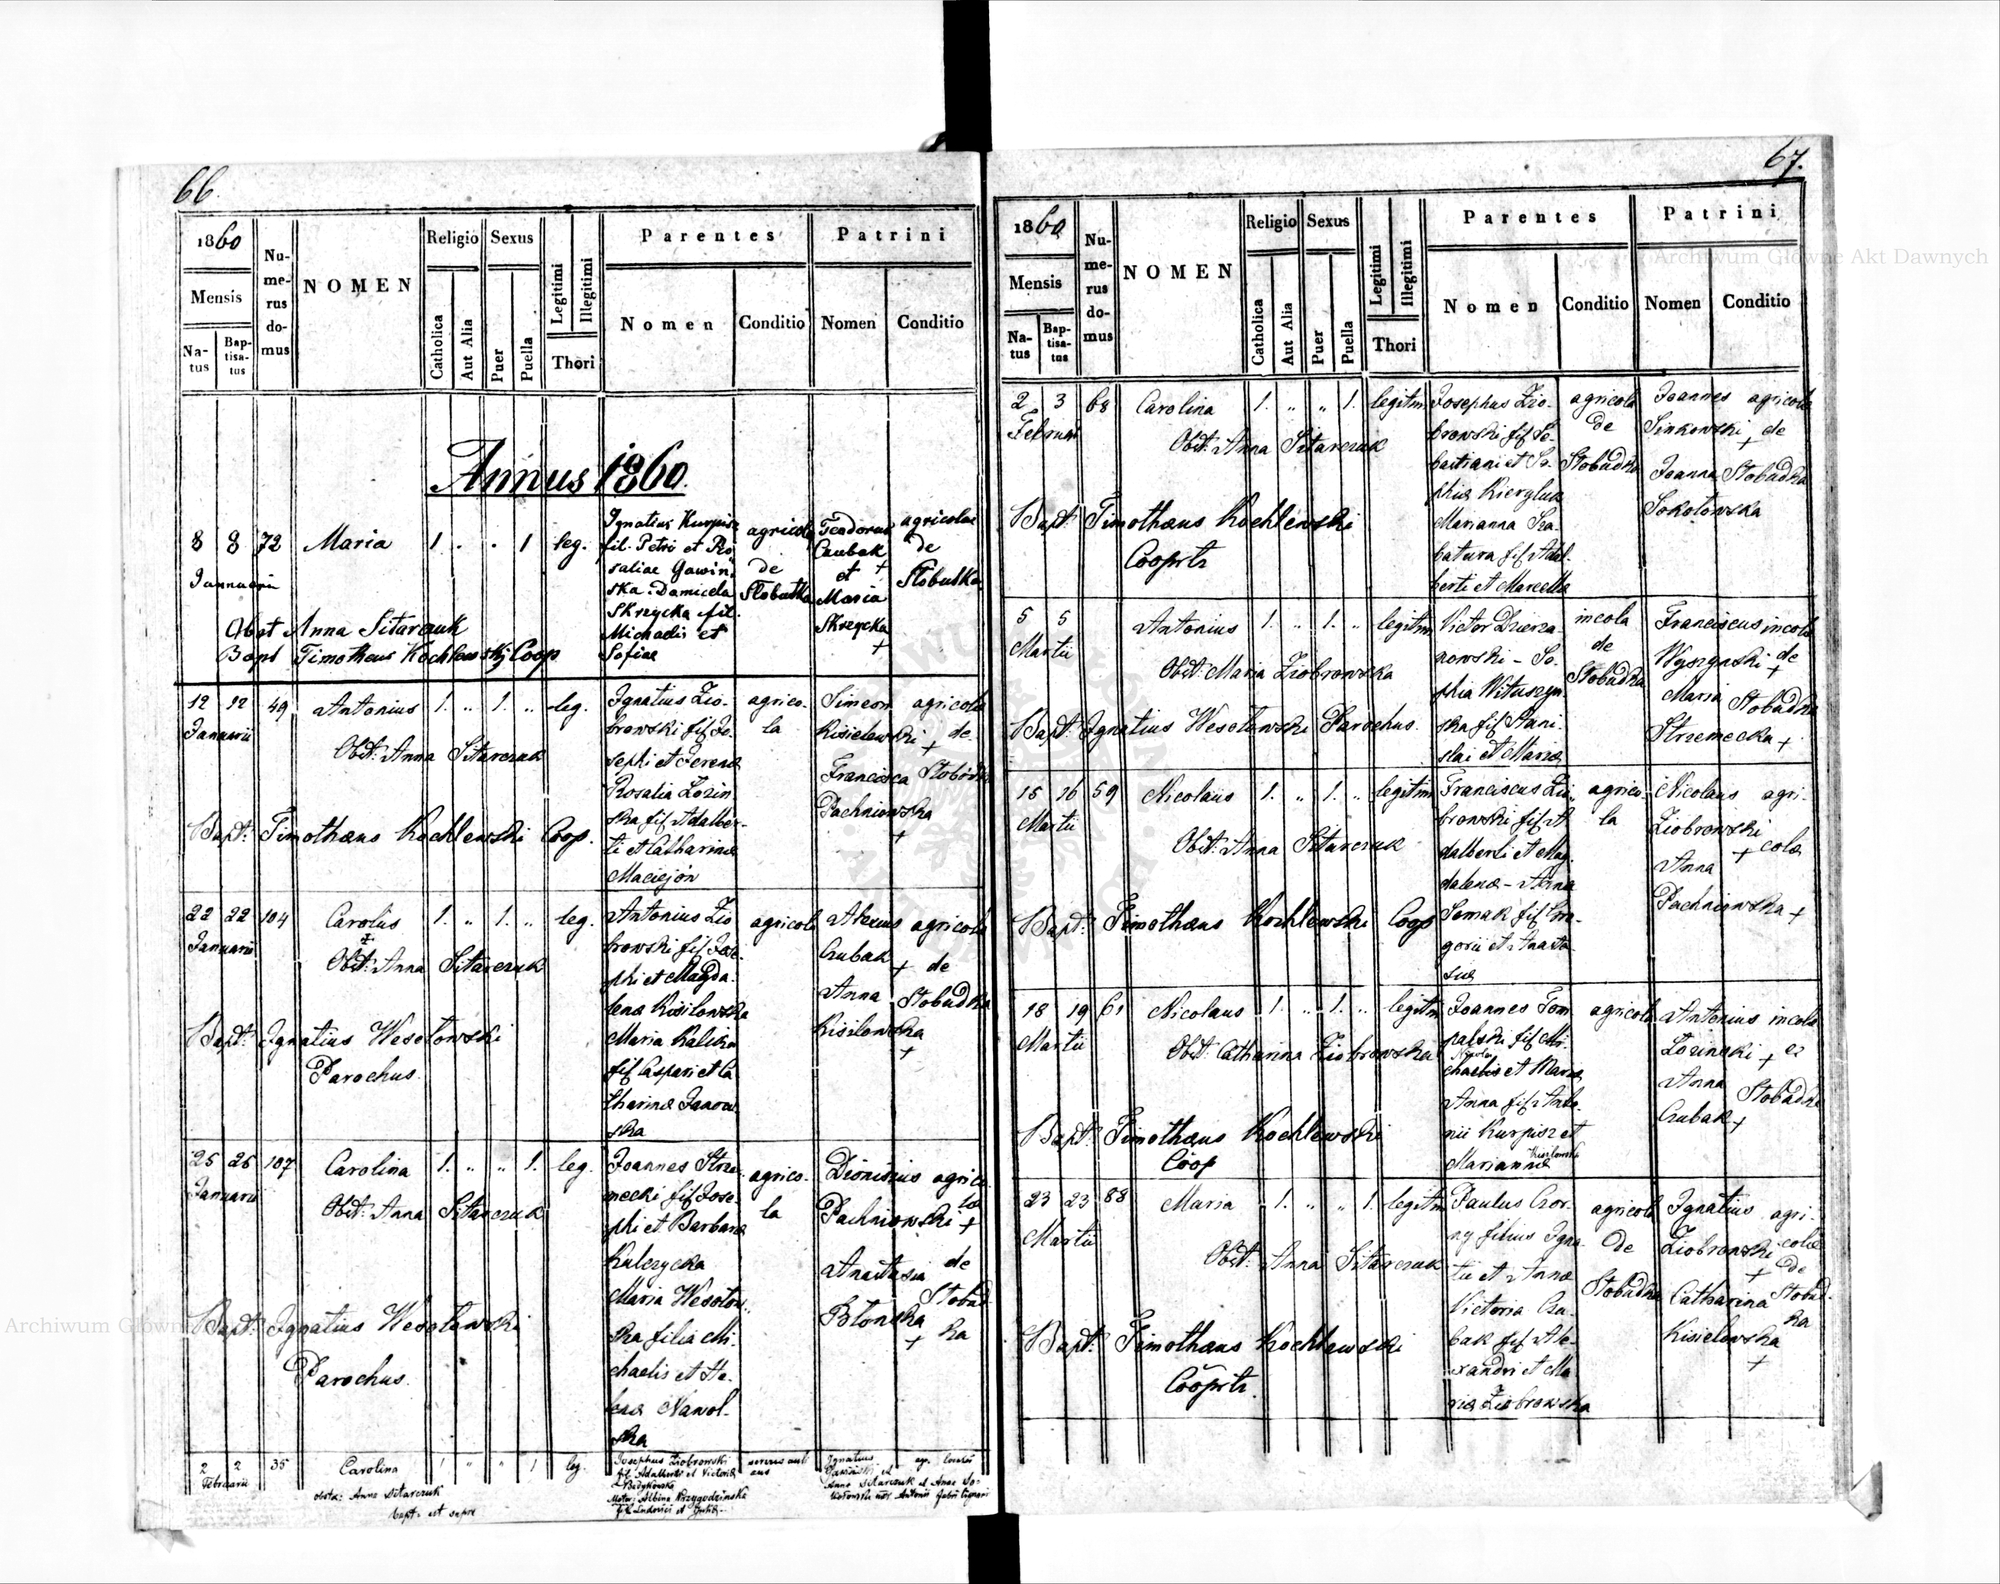 66.
1860
Mensis
Natus
Baptisatus
Numerus domus
NOMEN
Religio
Catholica
Aut Alia
Sexus
Puer
Puella
Legitimi
Illegitimi
Thori
Parentes
Nomen
Conditio
Patrini
Nomen
Conditio
Annus 1860.
8 8 72 Maria 1 . . 1 leg.
Januarii
Obst Anna Sitarczuk
Bapt Timotheus Kochlewskij Coop
Ignatius Kurpisz
fil. Petri et Ro-
saliae Gawin
ska. Damicela
Skrzycka fil.
Michaelis et
Sofiae
agricola
de
Slobudka
Teodorus
Czubak
+
et
Maria
Skrzycka
+
agricolae
de
Slobudka
12 12 49 Antonius 1. „ 1. „ leg.
Januarii
Obst: Anna Sitarczuk
Bapt: Timothæus Kochlewski Coop.
Ignatius Zio-
browski fil Jo-
sephi et Teresæ
Rosalia Lozin
ska fil Adalber-
ti et Catharinæ
Maciejon
agrico-
la
Simeon
Kisielewski +
Francisca
Pachniowska
+
agricola
de
Slobodka
22 22 104 Carolus 1. „ 1. „ leg.
Januarii
Obst: Anna Sitarczuk
Bapt: Ignatius Wesołowski
Parochus.
Antonius Zio
browski fil Jose
phi et Magda-
lena Kisilowska
Maria Kalicka
fil Caspari et Ca
tharinæ Janow
ska
agricola
Czubak
+
Anna
Kisilowska
+
agricola
de
Slobudka
25 26 107 Carolina 1. „ „ 1. leg.
Januarii
Obst: Anna Sitarczuk
Bapt: Ignatius Wesołowski
Parochus.
Joannes Strze
mecki fil Jose-
phi et Barbara
Kulczycka
Maria Wesołow
ska filia Mi-
chaelis et He-
lenæ Nawol-
ska
agrico-
la
Dionisius
Pachniowski +
Anastasia
Blonska
+
agrico
læ
de
Slobud
ka
2 2 35 Carolina 1 „ „ 1 leg.
Februarii
obstx: Anna Sitarczuk
bapt: ut supra
Josephus Ziobrowski
fil Adalberti et Victoriæ
Mater: Albina Krzygodzinska
fil Ludovici et
Ignatius
et
Anna Sitarczuk et Anna So-
67.
1860
Mensis
Natus
Baptisatus
Numerus domus
NOMEN
Religio
Catholica
Aut Alia
Sexus
Puer
Puella
Legitimi
Illegitimi
Thori
Parentes
Nomen
Conditio
Patrini
Nomen
Conditio
2 3 68 Carolina 1. „ „ 1. legitm
Februar
Obst: Anna Sitarczuk
Bapt: Timothæus Kochlewski
Cooprtr
Josephus Zio-
browski fil Se-
bastiani et So-
phiæ Kiergluk
Marianna Sza-
batura fil Adal-
berti et Marcella
agricola
de
Slobudka
Joannes
Sinkowski +
Joanna
Sokołowska
agricola
de
Slobudka
5 5 Antonius 1. „ 1. „ legitm
Martii
Obst: Maria Ziobrowska
Bapt: Ignatius Wesołowski Parochus.
Victor Dzierza-
nowski - So-
phia Wituszyn
ska fil Stani-
slai et Mariæ
incola
de
Slobudka
Franciscus
Wyszynski +
Maria
Strzemecka +
incola
de
Slobudka
15 16 59 Nicolaus 1. „ 1. „ legitm
Martii
Obst: Anna Sitarczuk
Bapt: Timothæus Kochlewski Coop
Franciscus Zio
browski fil A
dalberti et Mag-
dalenæ - Anna
Semak fil Gre-
gorii et Anasta
siæ
agrico-
la
Nicolaus
Ziobrowski
+
Anna
Pachniowska +
agri-
colæ
18 19 61 Nicolaus 1. „ 1. „ legitm
Martii
Obst: Catharina Ziobrowska
Bapt: Timothæus Kochlewski
Coop
Joannes Tom
palski fil Mi-
chaelis et Mariæ
Anna fil Anto-
nii Kurpisz et
Mariannæ Kisilowska
agricola
Antonius
Lozinski +
Anna
Czubak +
incola
ex
Slobudka
23 23 88 Maria 1. „ „ 1. legitm
Martii
Obst: Anna Sitarczuk
Bapt: Timothæus Kochlewski
Cooprtr.
Paulus Czor-
ny filius Igna-
tii et Annæ
Victoria Czu-
bak fil Ale-
xandri et Ma
riæ Ziobrowska
agricola
de
Slobudka
Ignatius
Ziobrowski
+
Catharina
Kisielewska
+
agri-
colæ
de
Slobud-
ka
Archiwum Główne Akt Dawnych
Archiwum Główne